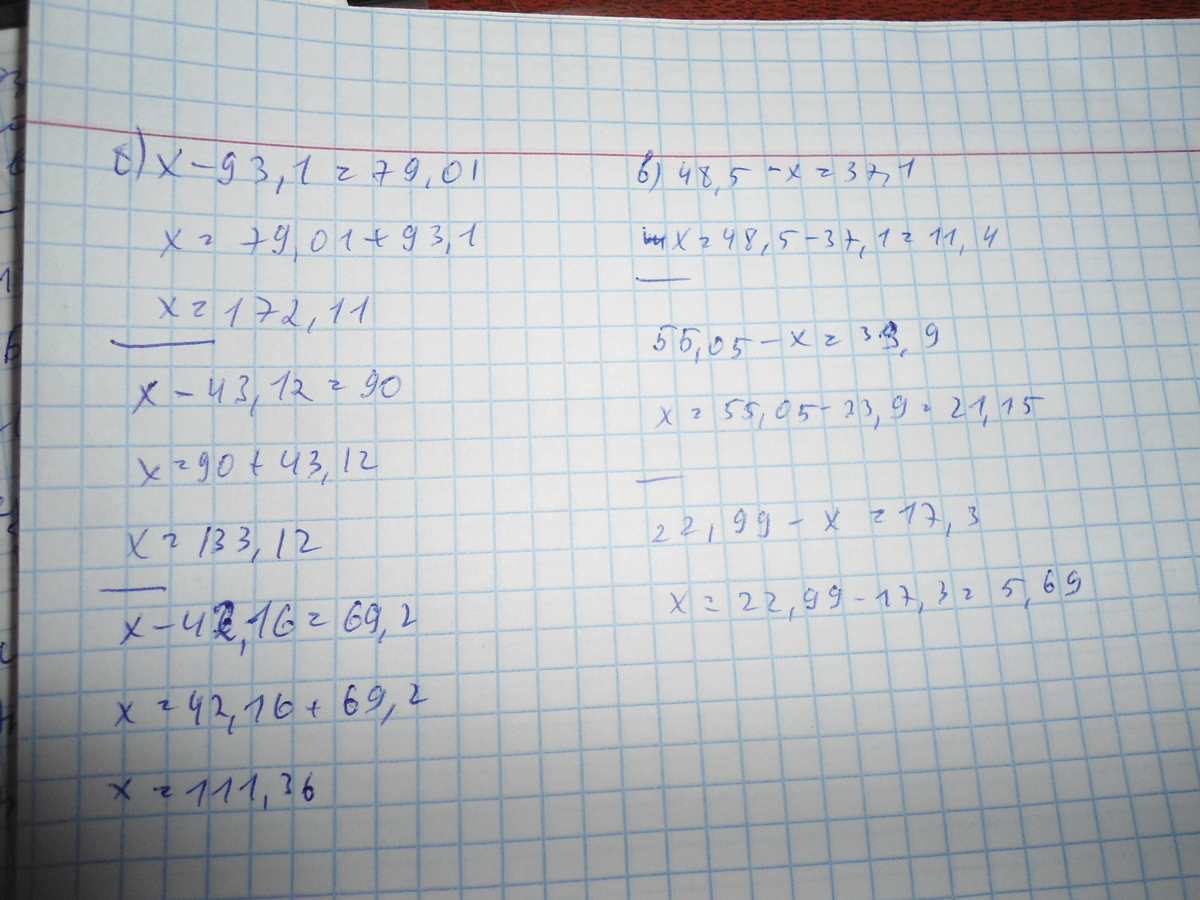 б) x - 93,1 = 79,01
x = 79,01 + 93,1
x = 172,11
x - 43,12 = 90
x = 90 + 43,12
x = 133,12
x - 42,16 = 69,2
x = 42,16 + 69,2
x = 111,36
в) 48,5 - x = 37,1
x = 48,5 - 37,1 = 11,4
55,05 - x = 33,9
x = 55,05 - 33,9 = 21,15
22,99 - x = 17,3
x = 22,99 - 17,3 = 5,69